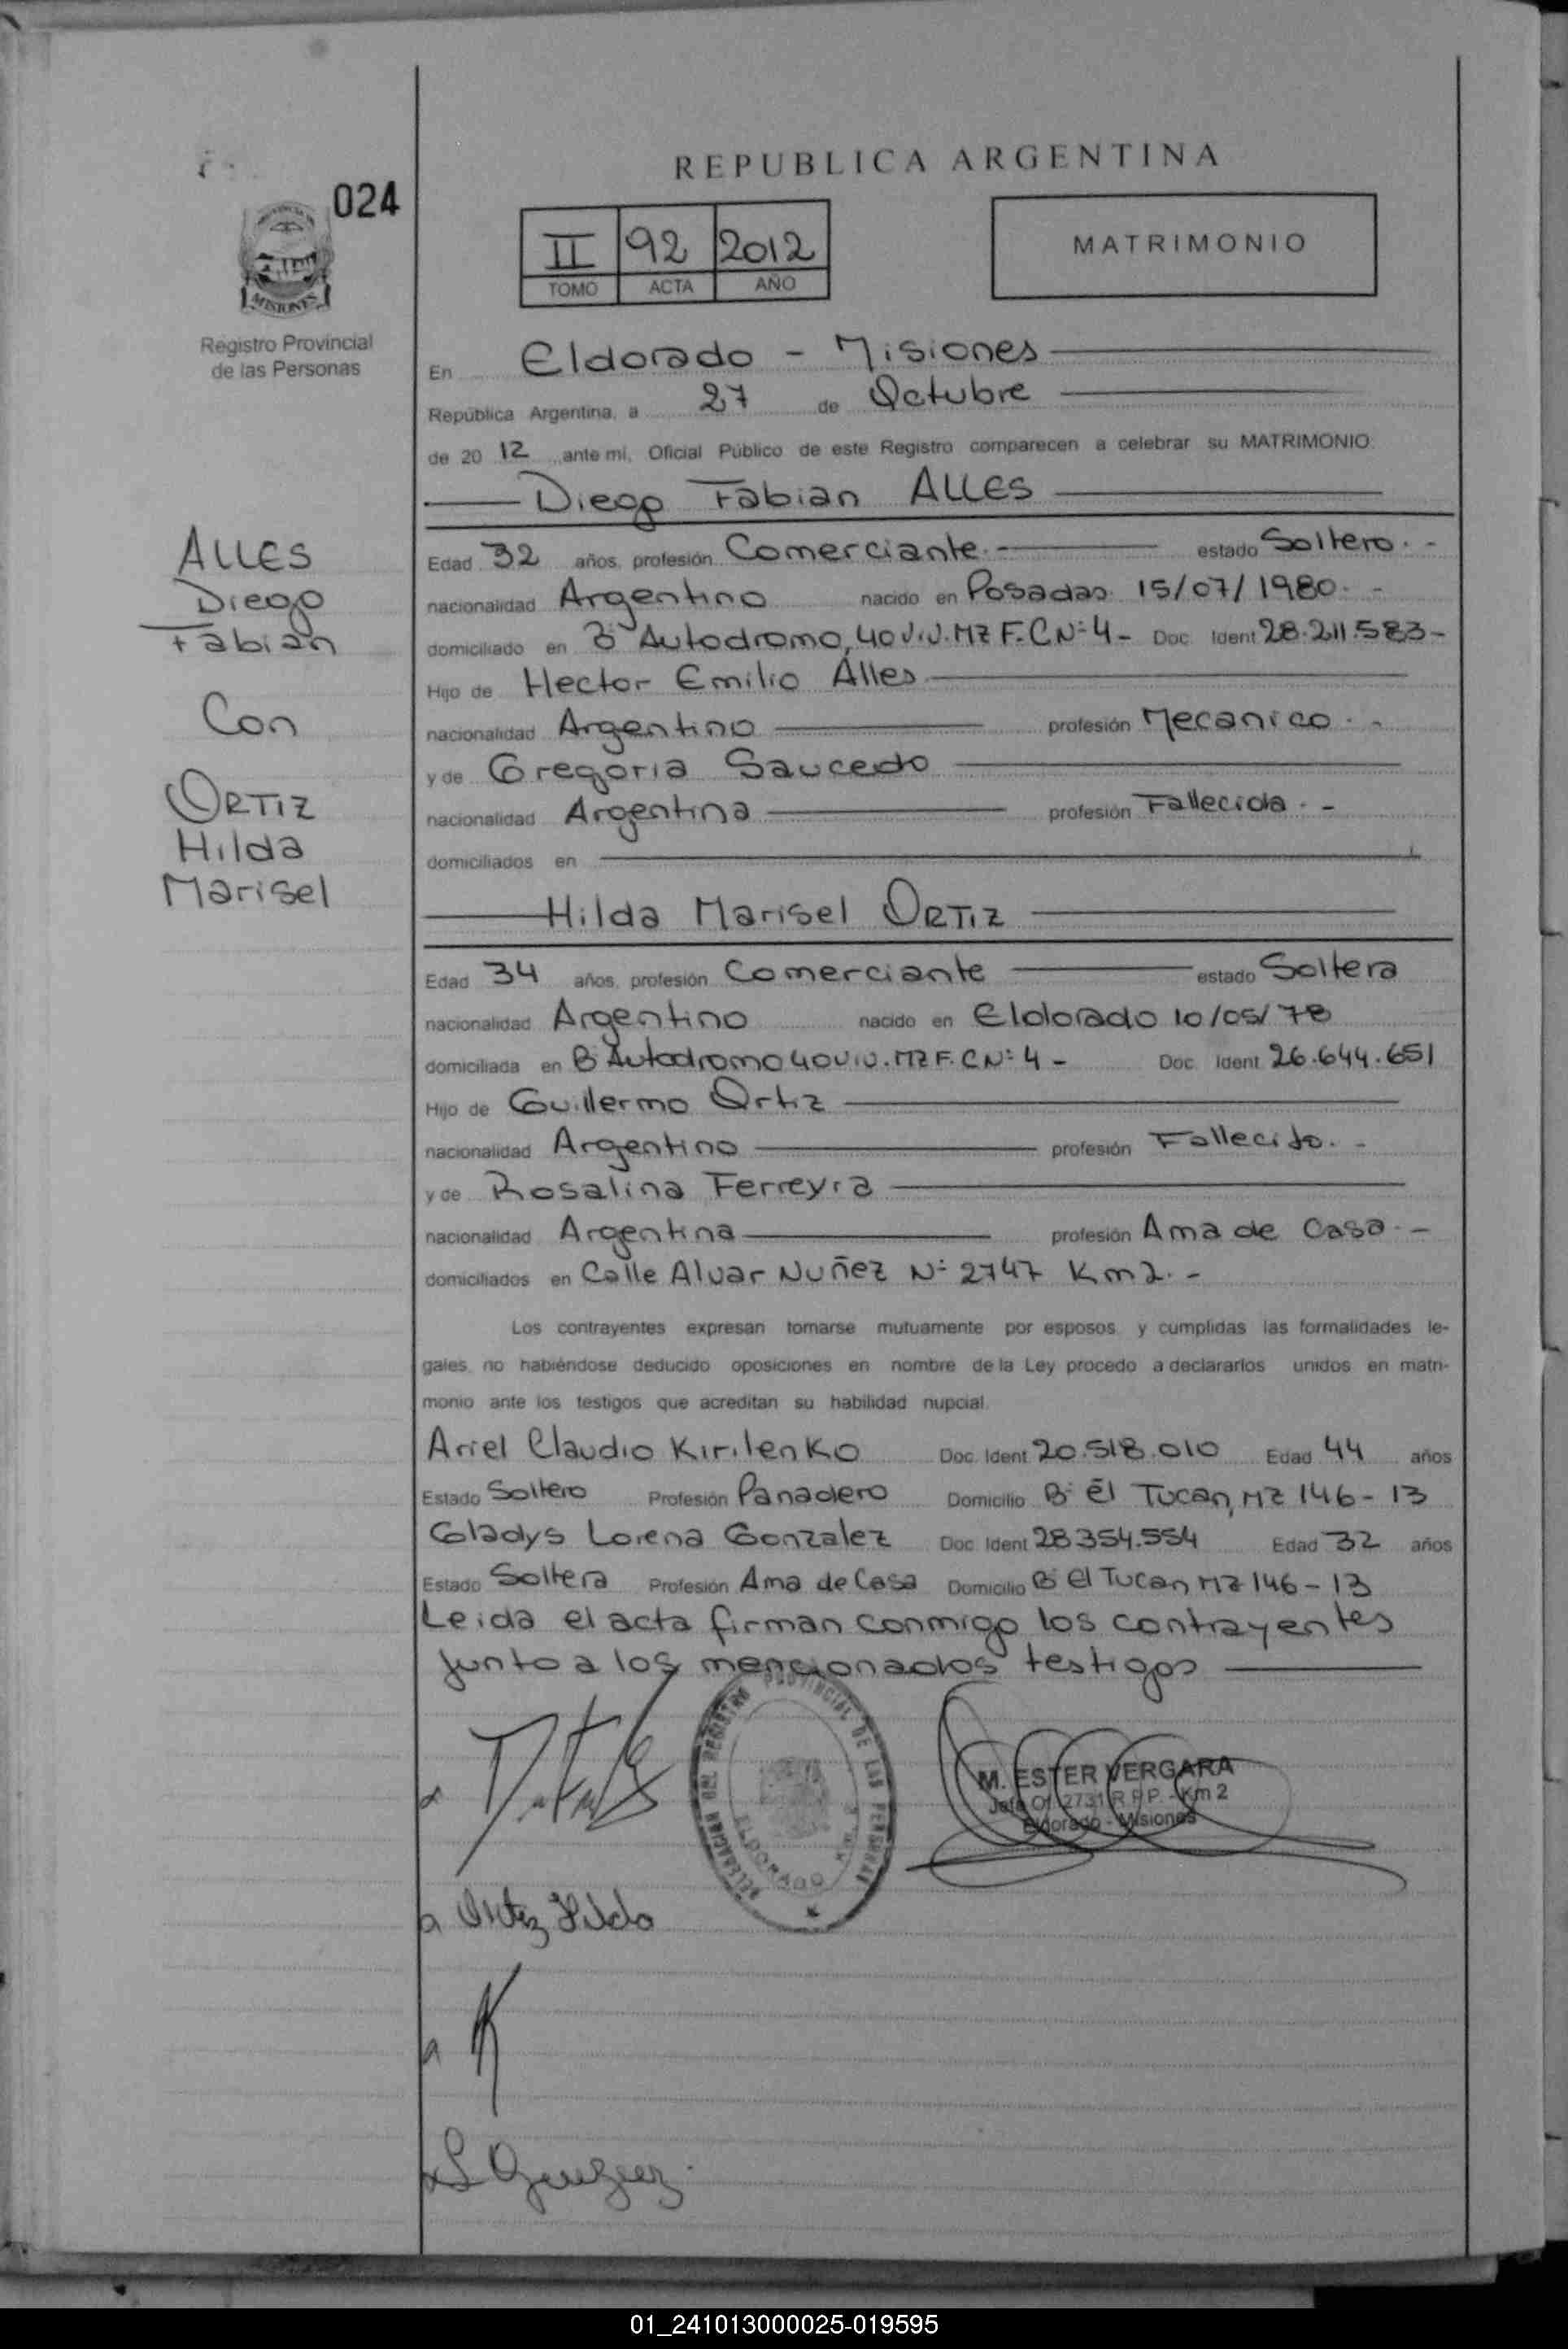 024
PROVINCIA DE
MISIONES
Registro Provincial
de las Personas
REPUBLICA ARGENTINA
II 92 2012
TOMO ACTA AÑO
MATRIMONIO
En Eldorado - Misiones
República Argentina, a 27 de Octubre
de 20 12 ante mi, Oficial Público de este Registro comparecen a celebrar su MATRIMONIO:
Diego Fabian ALLES
ALLES
Diego
Fabian
Con
ORTIZ
Hilda
Marisel
Edad 32 años, profesión Comerciante.- estado Soltero.-
nacionalidad Argentino nacido en Posadas 15/07/1980.-
domiciliado en Bº Autodromo, 40 Viv. MZ F. C Nº 4 - Doc. Ident 28.211.583-
Hijo de Hector Emilio Alles
nacionalidad Argentino profesión Mecanico.-
y de Gregoria Saucedo
nacionalidad Argentina profesión Fallecida.-
domiciliados en
Hilda Marisel ORTIZ
Edad 34 años, profesión Comerciante estado Soltera
nacionalidad Argentino nacido en Eldorado 10/05/78
domiciliada en Bº Autodromo 40 Viv. MZ F. C Nº 4 - Doc. Ident 26.644.651
Hijo de Guillermo Ortiz
nacionalidad Argentino profesión Fallecido.-
y de Rosalina Ferreyra
nacionalidad Argentina profesión Ama de Casa.-
domiciliados en Calle Alvar Nuñez Nº 2747 Km 2.-
Los contrayentes expresan tomarse mutuamente por esposos y cumplidas las formalidades le-
gales, no habiéndose deducido oposiciones en nombre de la Ley procedo a declararlos unidos en matri-
monio ante los testigos que acreditan su habilidad nupcial.
Ariel Claudio Kirilenko Doc. Ident 20.518.010 Edad 44 años
Estado Soltero Profesión Panadero Domicilio Bº El Tucan, MZ 146-13
Gladys Lorena Gonzalez Doc. Ident 28354.554 Edad 32 años
Estado Soltera Profesión Ama de Casa Domicilio Bº El Tucan MZ 146-13
Leida el acta firman conmigo los contrayentes
junto a los mencionados testigos
DELEGACION DEL REGISTRO PROVINCIAL DE LAS PERSONAS
ELDORADO Km. 2
M. ESTER VERGARA
Jefe Of. 2731 R.P.P. - Km 2
Eldorado - Misiones
Ortiz Hilda
01_241013000025-019595